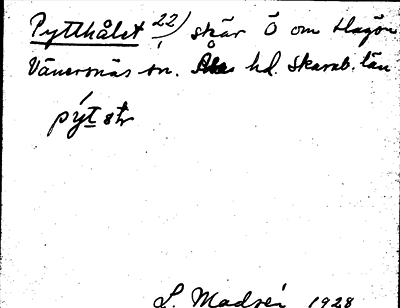 Pytthålet 22) skär Ö om Hagön
Vänersnäs sn. Åse hd. Skarab. län
pýt str
L. Modéer 1928